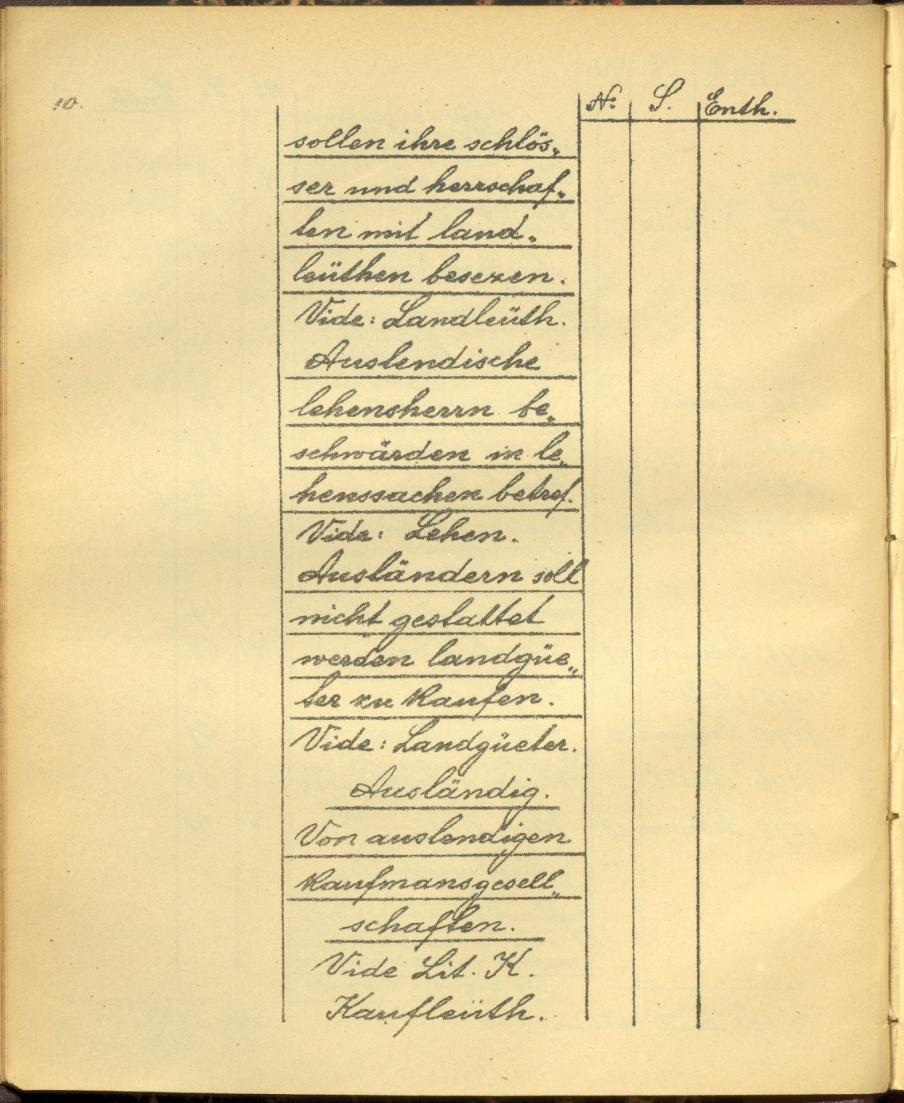 10.
No. S. Enth.
sollen ihre schlös„
ser und herrschaf„
ten mit land„
leüthen besezen.
Vide: Landleüth.
Auslendische
lehensherrn be„
schwärden in le„
henssachen betref.
Vide: Lehen.
Ausländern soll
nicht gestattet
werden landgüe„
ter zu kaufen.
Vide: Landgüeter.
Ausländig.
Von auslendigen
kaufmansgesell„
schaften.
Vide Lit. K.
Kaufleüth.